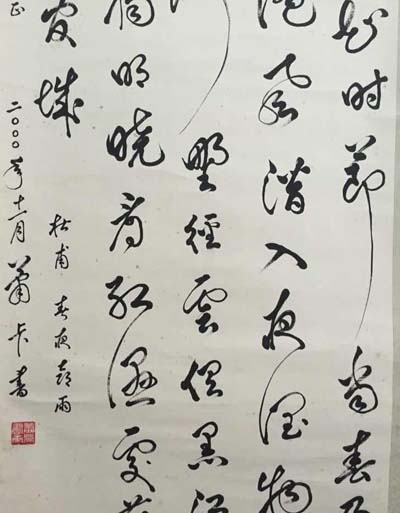 知时節当春乃
随風潜入夜润物
野徑雲俱黑江
獨明晓看红湿處花
官城
杜甫 春夜喜雨
正 二〇〇〇年十一月 萧卡書